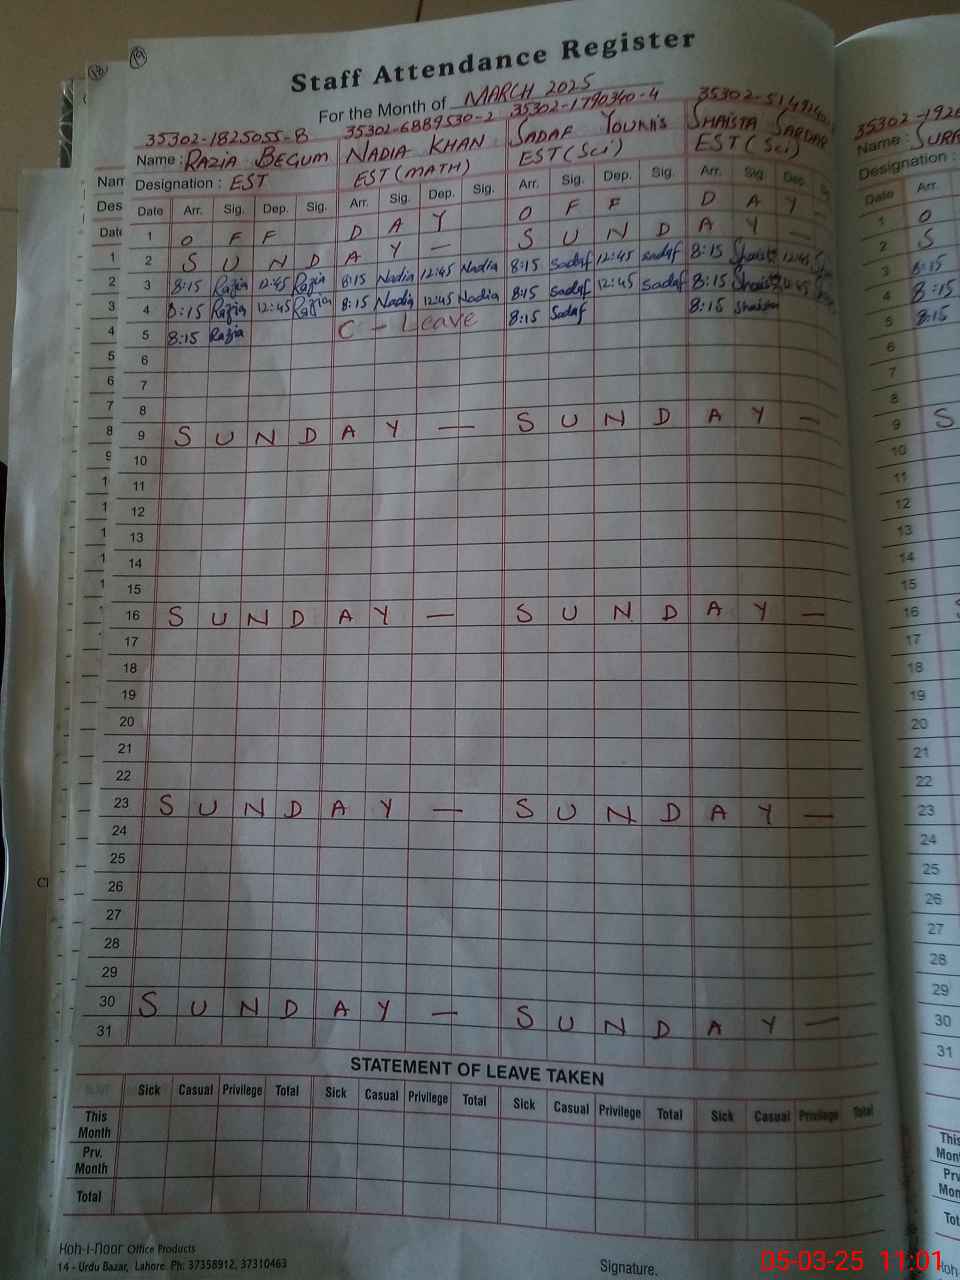 Staff Attendance Register
For the Month of MARCH 2025
35302-1825055-8 35302-6889530-2 35302-1790340-4 35302-5149240
Name: RAZIA BEGUM NADIA KHAN SADAF YOUNIS SHAISTA SARDAR
Designation: EST EST (MATH) EST (Sci) EST (Sci)
Date Arr. Sig. Dep. Sig. Arr. Sig. Dep. Sig. Arr. Sig. Dep. Sig. Arr. Sig. Dep.
1 O F F D A Y O F F D A Y —
2 S U N D A Y — S U N D A Y —
3 8:15 Razia 12:45 Razia 8:15 Nadia 12:45 Nadia 8:15 Sadaf 12:45 Sadaf 8:15 Shaista 12:45
4 8:15 Razia 12:45 Razia 8:15 Nadia 12:45 Nadia 8:15 Sadaf 12:45 Sadaf 8:15 Shaista 12:45
5 8:15 Razia C - Leave 8:15 Sadaf 8:15 Shaista
6
7
8
9 S U N D A Y — S U N D A Y —
10
11
12
13
14
15
16 S U N D A Y — S U N D A Y —
17
18
19
20
21
22
23 S U N D A Y — S U N D A Y —
24
25
26
27
28
29
30 S U N D A Y — S U N D A Y —
31
STATEMENT OF LEAVE TAKEN
Sick Casual Privilege Total Sick Casual Privilege Total Sick Casual Privilege Total Sick Casual Privilege Total
This Month
Prv. Month
Total
Koh-i-noor Office Products
14 - Urdu Bazar, Lahore. Ph: 37358912, 37310463
Signature.
35302-1926
Name: SURR
Designation:
Date Arr.
1 O
2 S
3 8:15
4 8:15
5 8:15
6
7
8
9 S
10
11
12
13
14
15
16 S
17
18
19
20
21
22
23
24
25
26
27
28
29
30
31
05-03-25 11:01